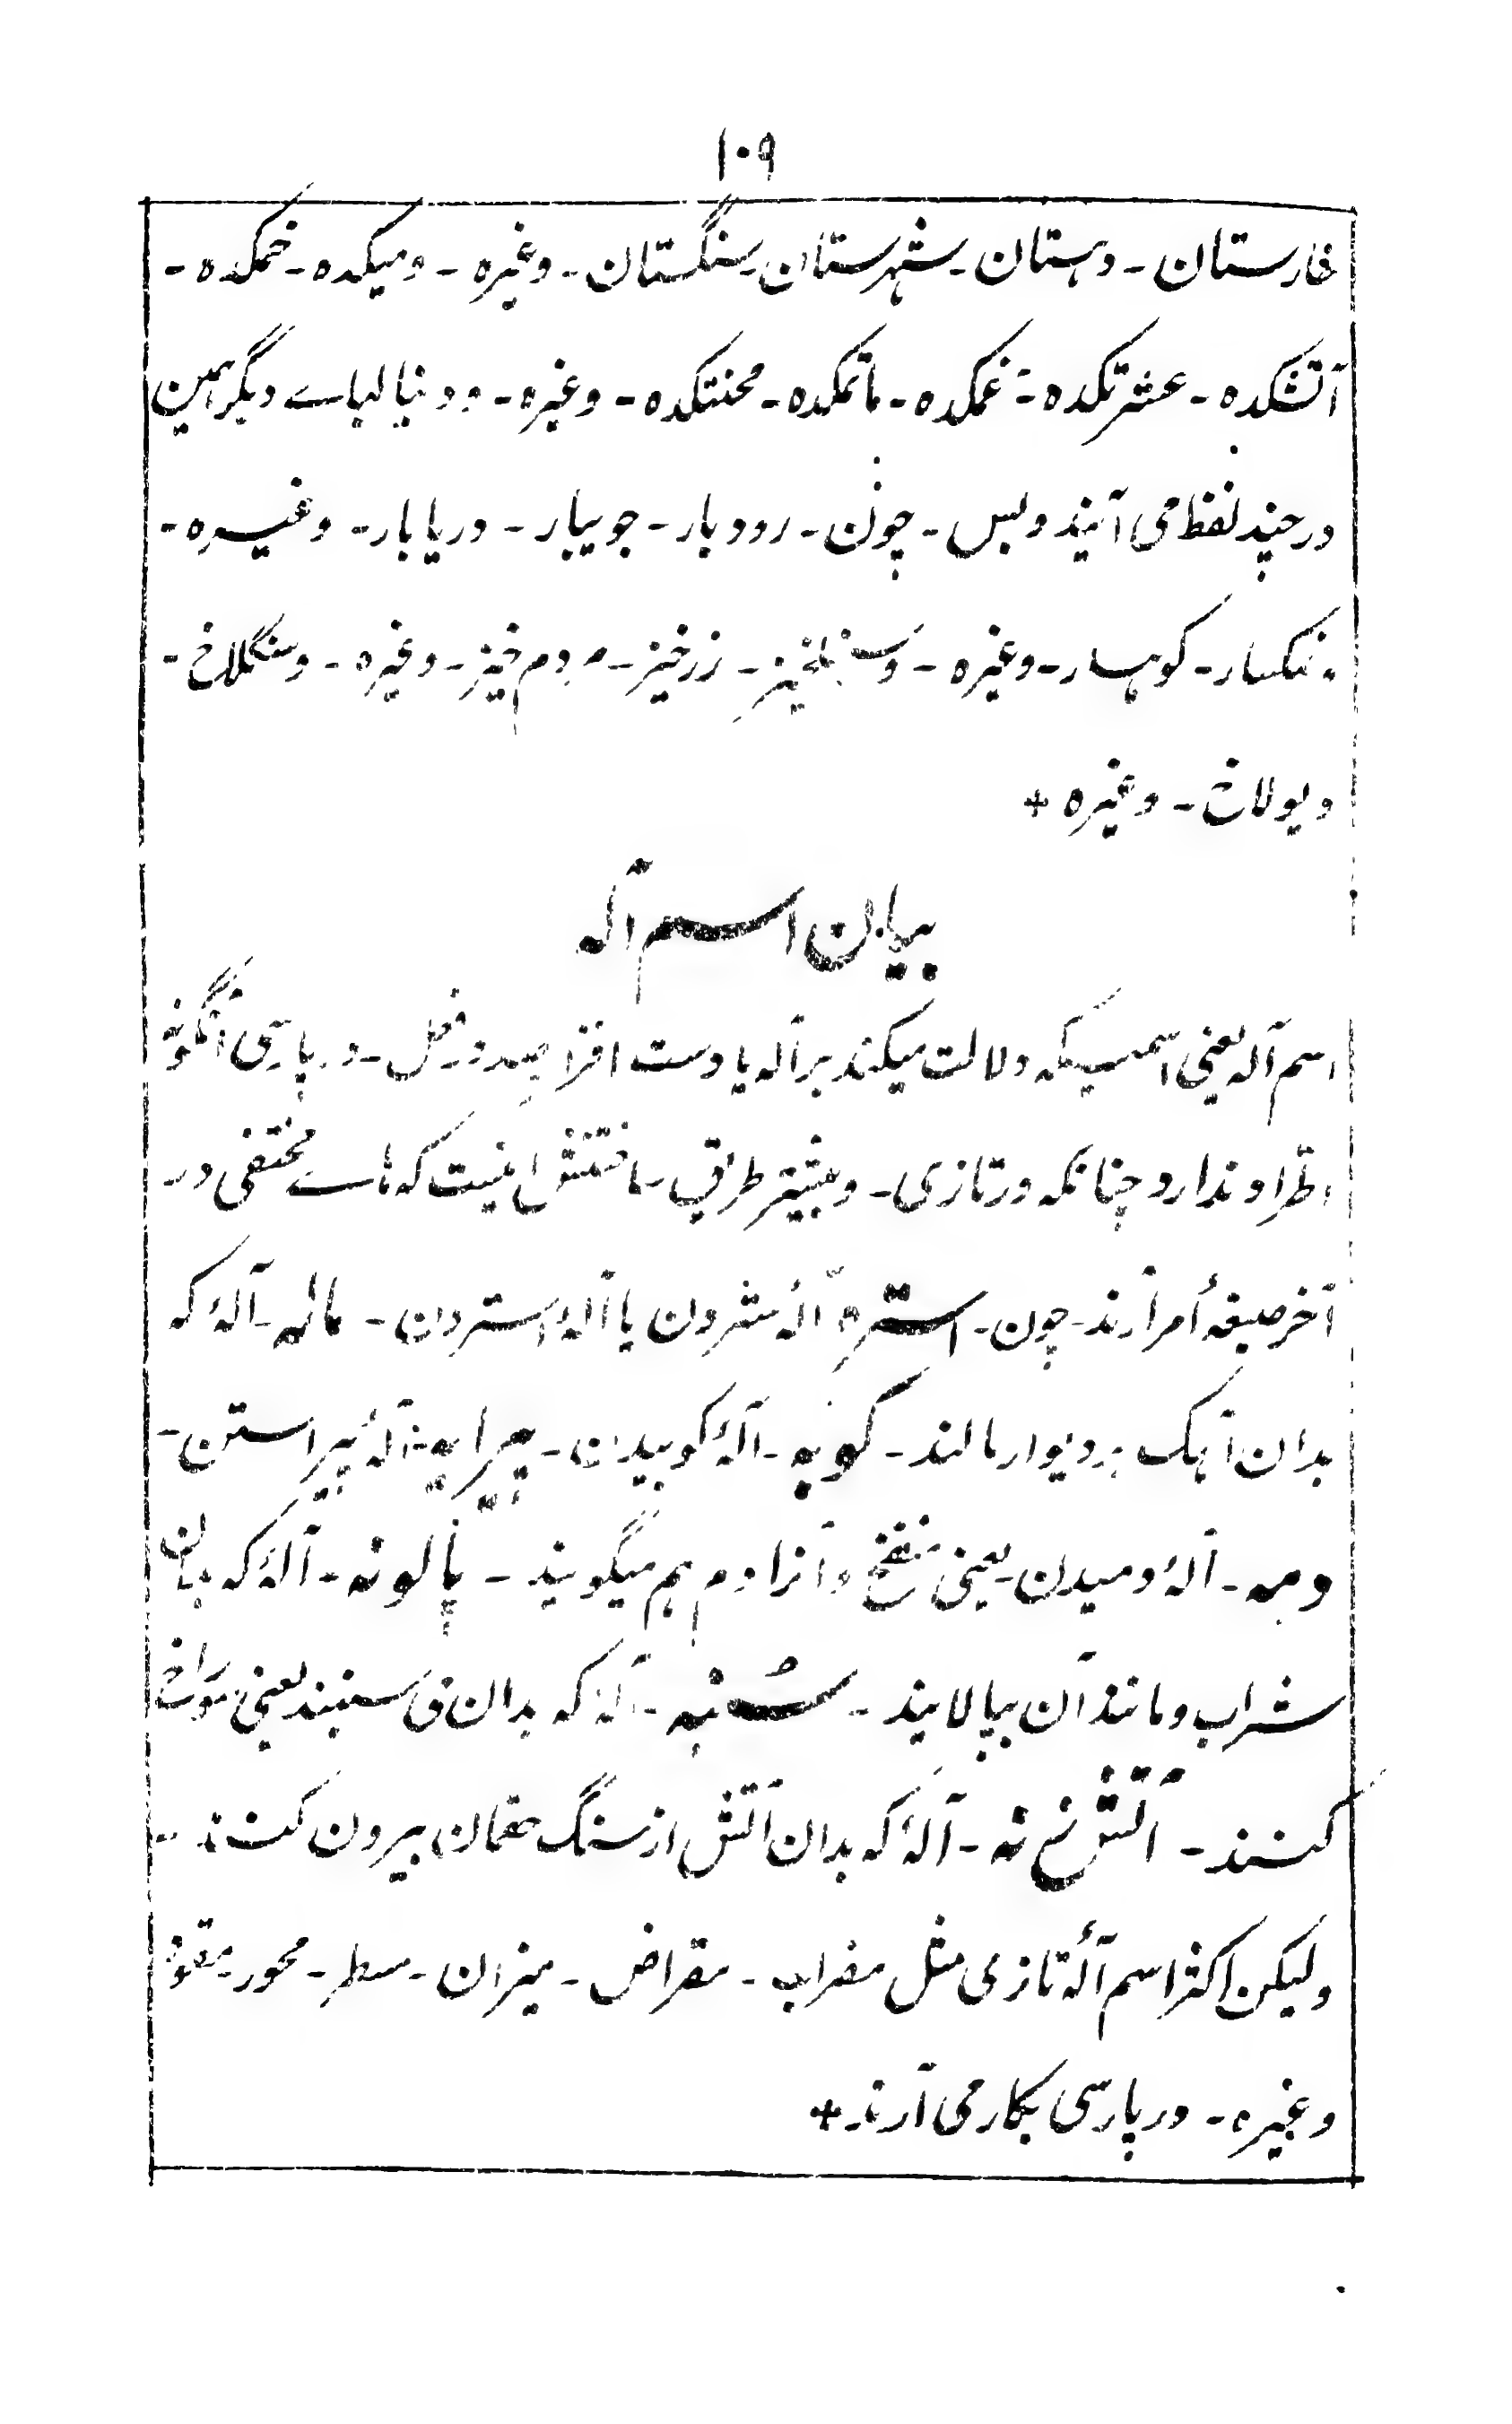 ۱۰۹
خارستان - دہستان - شہرستان - سنگستان - وغیرہ - ومیکدہ - خمکدہ -
آتشکدہ - عشرتکدہ - غمکدہ - ماتمکدہ - محنتکدہ - وغیرہ - و دنبالہاے دیگر ہمین
در چند لفظ می آیند و بس - چون - رودبار - جویبار - دریابار - وغیرہ -
نمکسار - کوہسار - وغیرہ - و سنبلخیز - زرخیز - مردم خیز - وغیرہ - و سنگلاخ -
دیولاخ - وغیرہ +
بیان اسم آلہ
اسم آلہ یعنی اسمیکہ دلالت میکند بر آلہ یا دست افزار صدور فعل - در پارسی آنگونہ
اطراد ندارد چنانکہ در تازی - و بیشتر طریق ساختنش اینست کہ ہاے مختفی در
آخر صیغۂ امر آرند - چون - استرہ آلۂ ستردن یا آلۂ استردن - مالہ - آلۂ کہ
بدان آہک بر دیوار مالند - کوبہ - آلۂ کوبیدن - پیرایہ - آلۂ پیراستن -
دمہ - آلۂ دمیدن یعنی منفخ و آنرا دم ہم میگویند - پالونہ - آلۂ کہ بدان
شراب و مانند آن بپالایند - سُنبہ - آلۂ کہ بدان می سنبند یعنی سوراخ
کنند - آتش زنہ - آلۂ کہ بدان آتش از سنگ چقماق بیرون کنند -
ولیکن اکثر اسم آلۂ تازی مثل مضراب - مقراض - میزان - مسطر - محور -
وغیرہ - در پارسی بکار می آرند +